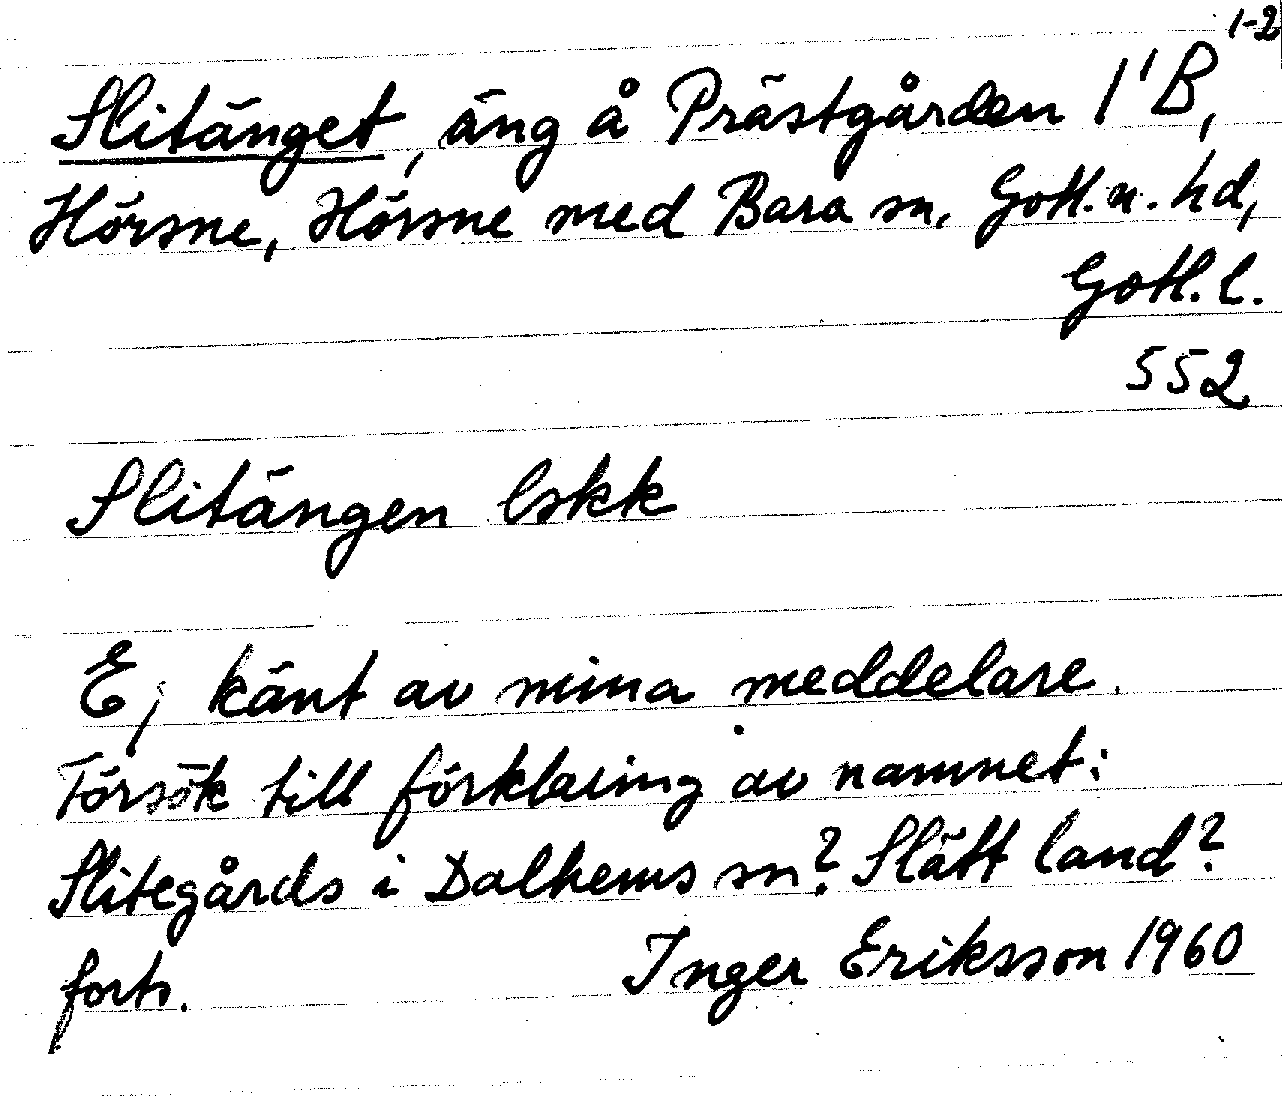 Slitänget, äng å Prästgården 1¹ B, 1-2
Hörsne, Hörsne med Bara sn, Gotl. n. hd,
Gotl. l.
552
Slitängen lskk
Ej känt av mina meddelare.
Försök till förklaring av namnet:
Slitegårds i Dalhems sn? Slätt land?
forts. Inger Eriksson 1960